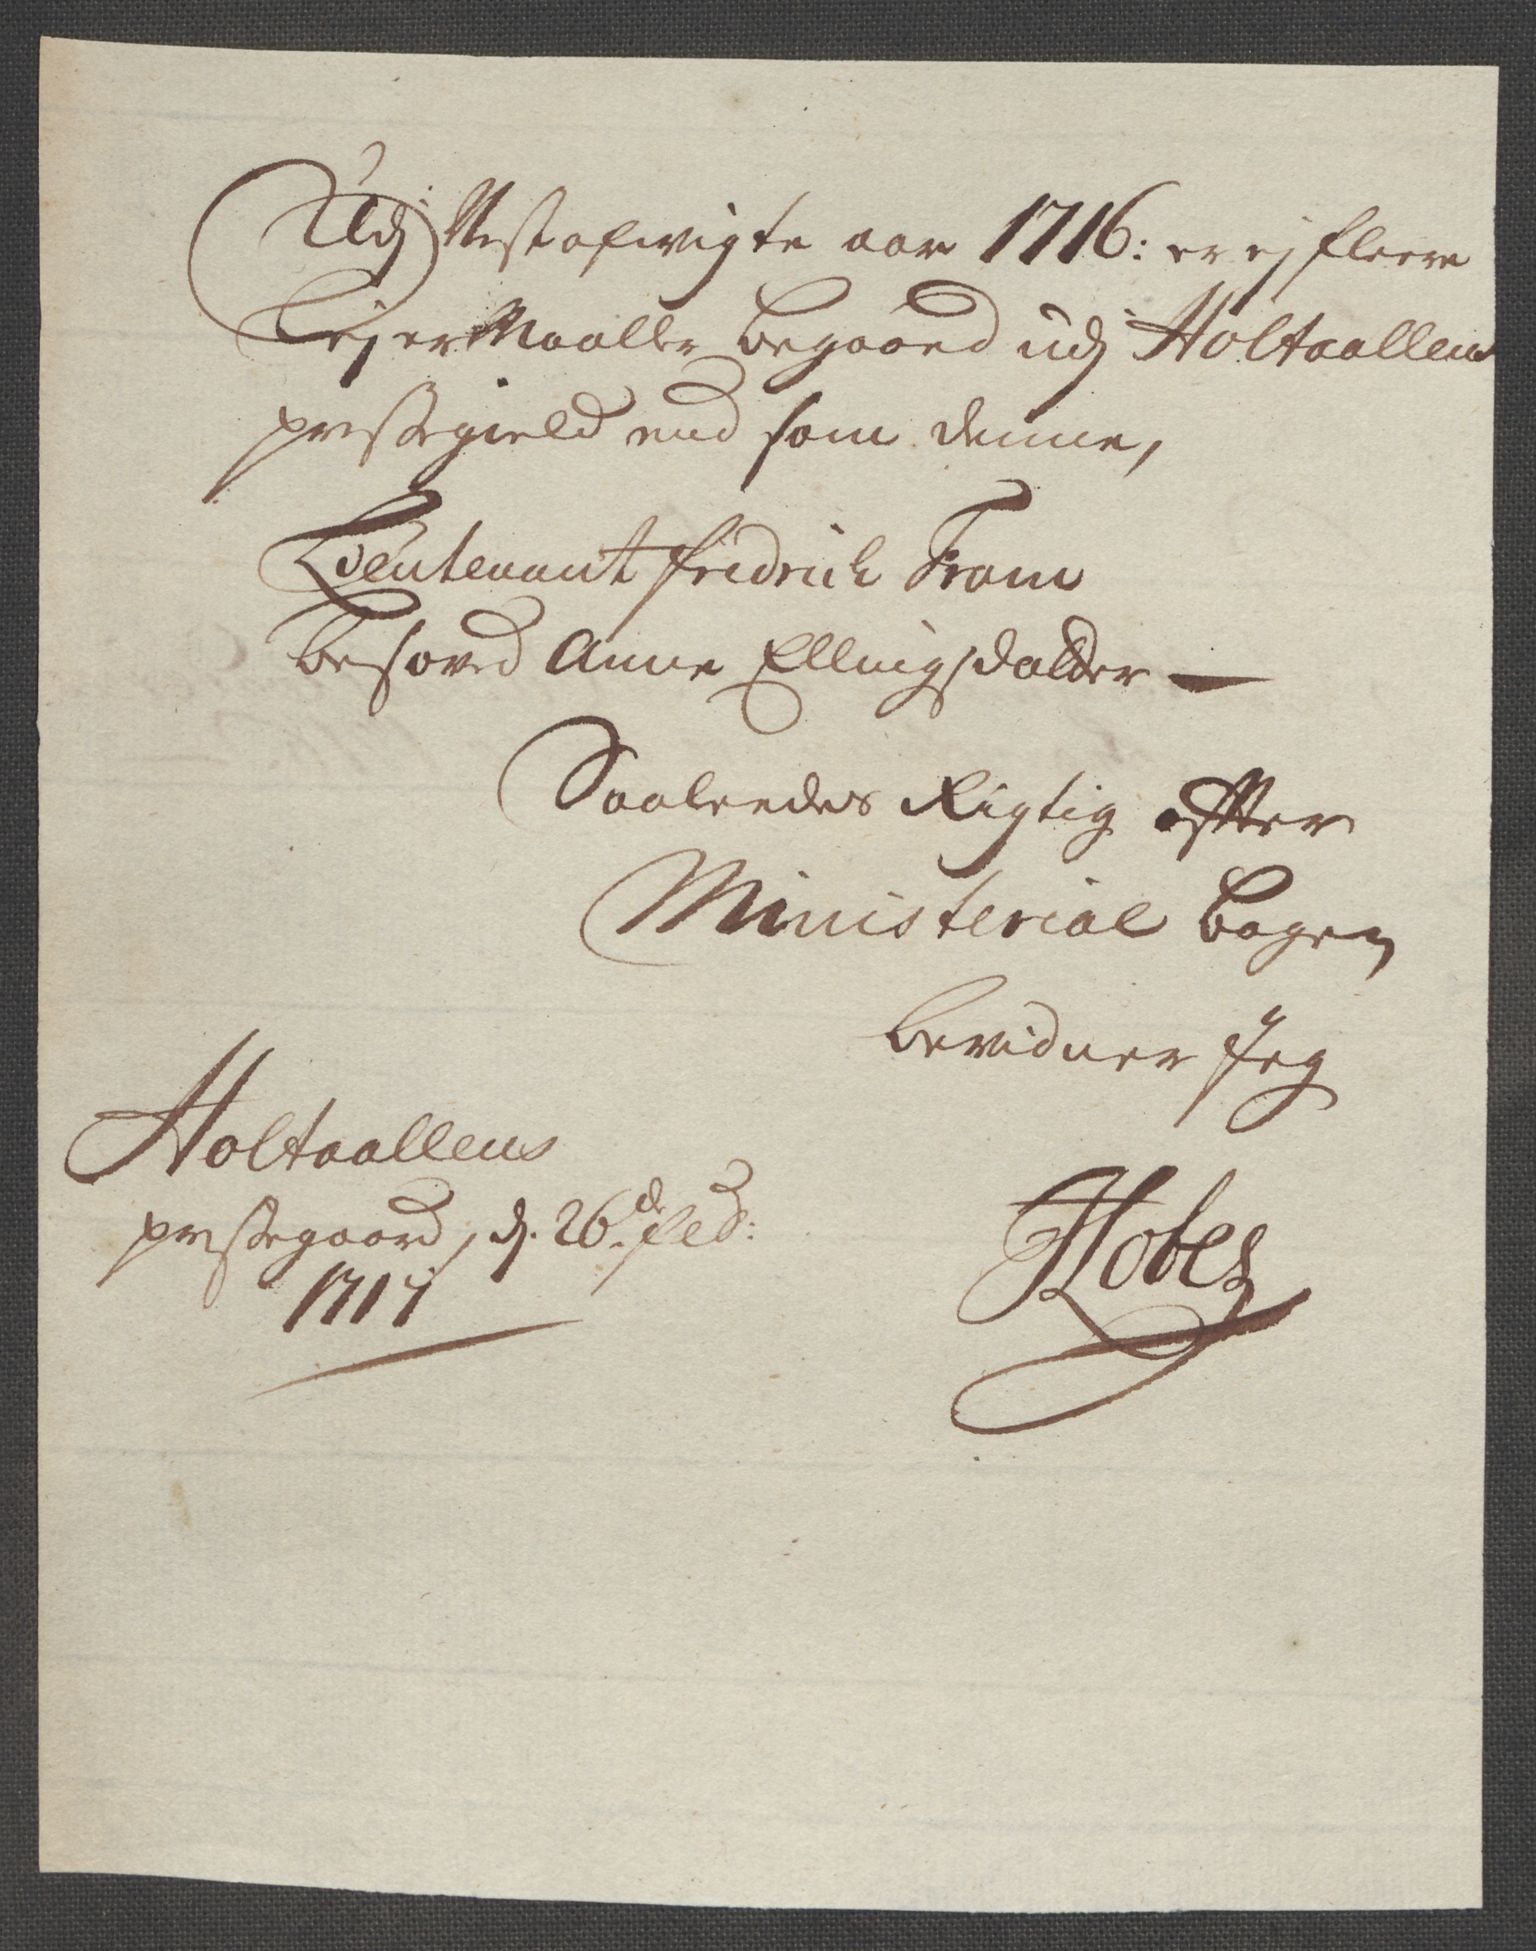 Udj Nest afvigte aar 1716: er ej fleere
Lejermaaller begaaed udj Holtaallens
prestegield end som denne,
Lieutenant fridrich From
besoved Anne Ellingsdatter —
Saaleedes Rigtig effter
Ministerial bogen
bevidner Jeg
Holtaallens
prestegaard, d. 26de feb:
1717